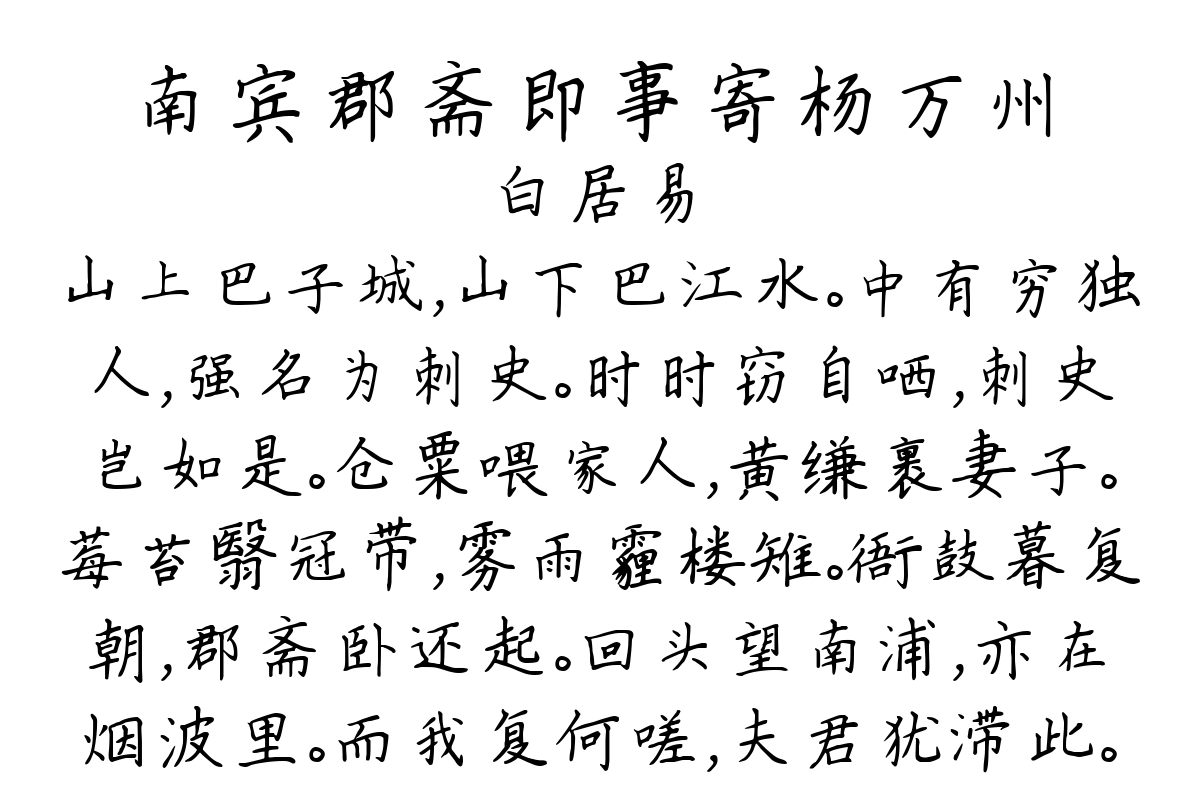 南宾郡斋即事寄杨万州
白居易
山上巴子城,山下巴江水。中有穷独
人,强名为刺史。时时窃自哂,刺史
岂如是。仓粟喂家人,黄缣裹妻子。
莓苔翳冠带,雾雨霾楼雉。衙鼓暮复
朝,郡斋卧还起。回头望南浦,亦在
烟波里。而我复何嗟,夫君犹滞此。